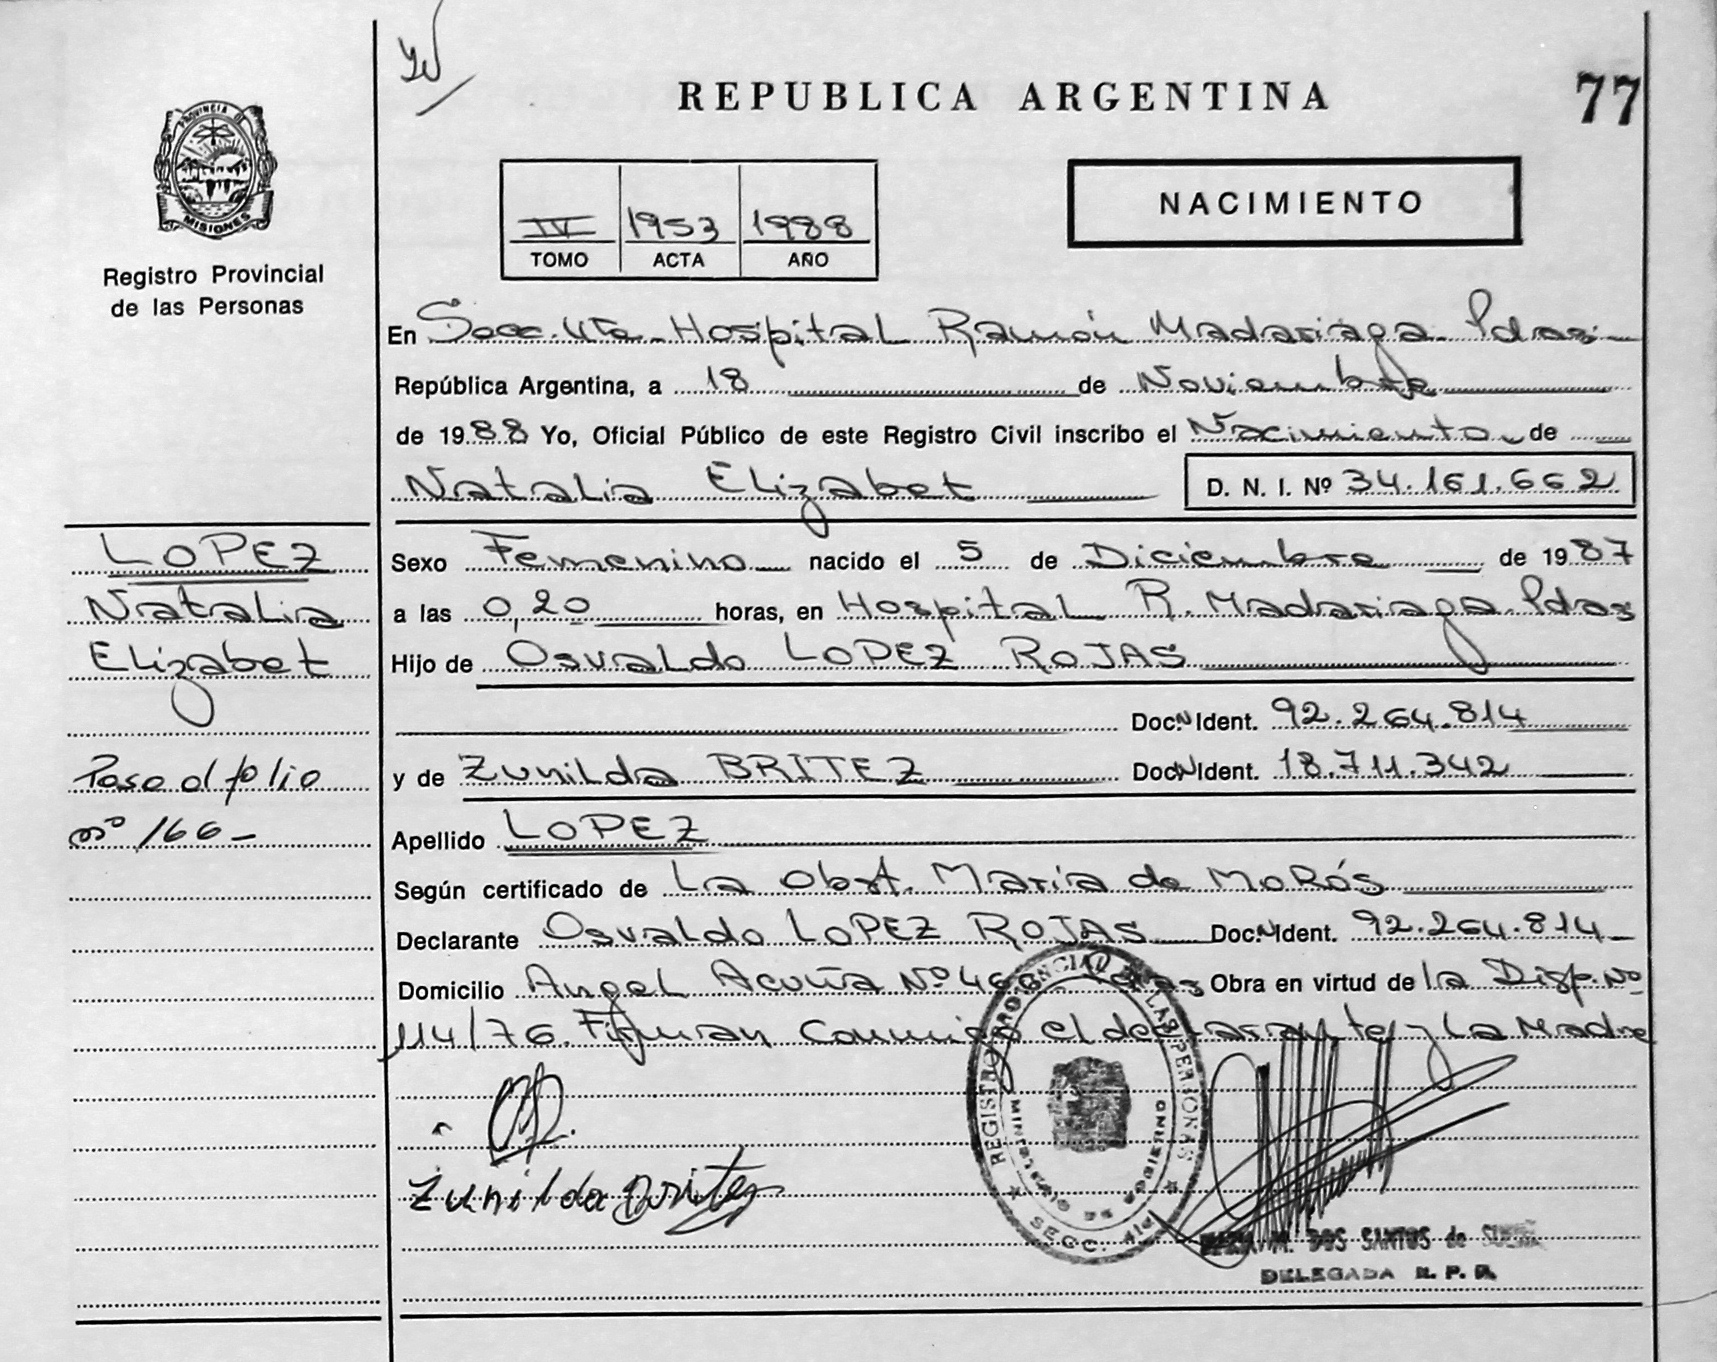 REPUBLICA ARGENTINA
77
PROVINCIA DE
MISIONES
Registro Provincial
de las Personas
IV 1953 1988
TOMO ACTA AÑO
NACIMIENTO
En Secc. 4ta. Hospital Ramón Madariaga. Pdas
República Argentina, a 18 de Noviembre
de 1988 Yo, Oficial Público de este Registro Civil inscribo el Nacimiento de
Natalia Elizabet D. N. I. Nº 34.161.662
LOPEZ
Natalia
Elizabet
Paso al folio
nº 166-
Sexo Femenino nacido el 5 de Diciembre de 1987
a las 0,20 horas, en Hospital R. Madariaga. Pdas
Hijo de Osvaldo LOPEZ ROJAS
Doc. N Ident. 92.264.814
y de Zunilda BRITEZ Doc. N Ident. 18.711.342
Apellido LOPEZ
Según certificado de La Obst. María de Morós
Declarante Osvaldo LOPEZ ROJAS Doc. N Ident. 92.264.814
Domicilio Angel Acuña Nº Pdas Obra en virtud de la Disp. Nº
114/76. Firman Conmigo el declarante y La Madre
Zunilda Britez
REGISTRO PROVINCIAL DE LAS PERSONAS
MINISTERIO DE GOBIERNO
SECC. 4ta
M. DOS SANTOS de
DELEGADA R. P. P.